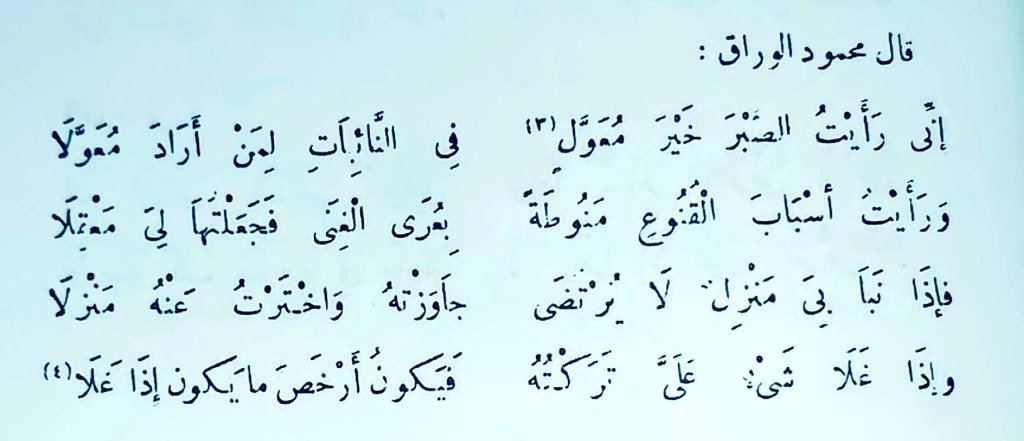 قال محمود الوراق :
إنِّى رَأَيْتُ الصَّبْرَ خَيْرَ مُعَوَّلٍ(٣) فِى النَّائِبَاتِ لِمَنْ أَرَادَ مُعَوَّلَا
وَرَأَيْتُ أسْبَابَ الْقُنُوعِ مَنُوطَةً بِعُرَى الْغِنَى فَجَعَلْتُهَا لِىَ مَعْقِلَا
فإذَا نَبَا بِىَ مَنْزِلٌ لَا يُرْتَضَى جاَوَزْتهُ وَاخْتَرْتُ عَنْهُ مَنْزِلَا
وإذَا غَلَا شَىْءٌ عَلَىَّ تَرَكْتُهُ فَيَكونُ أَرْخَصَ ما يَكون إذَا غَلَا(٤)